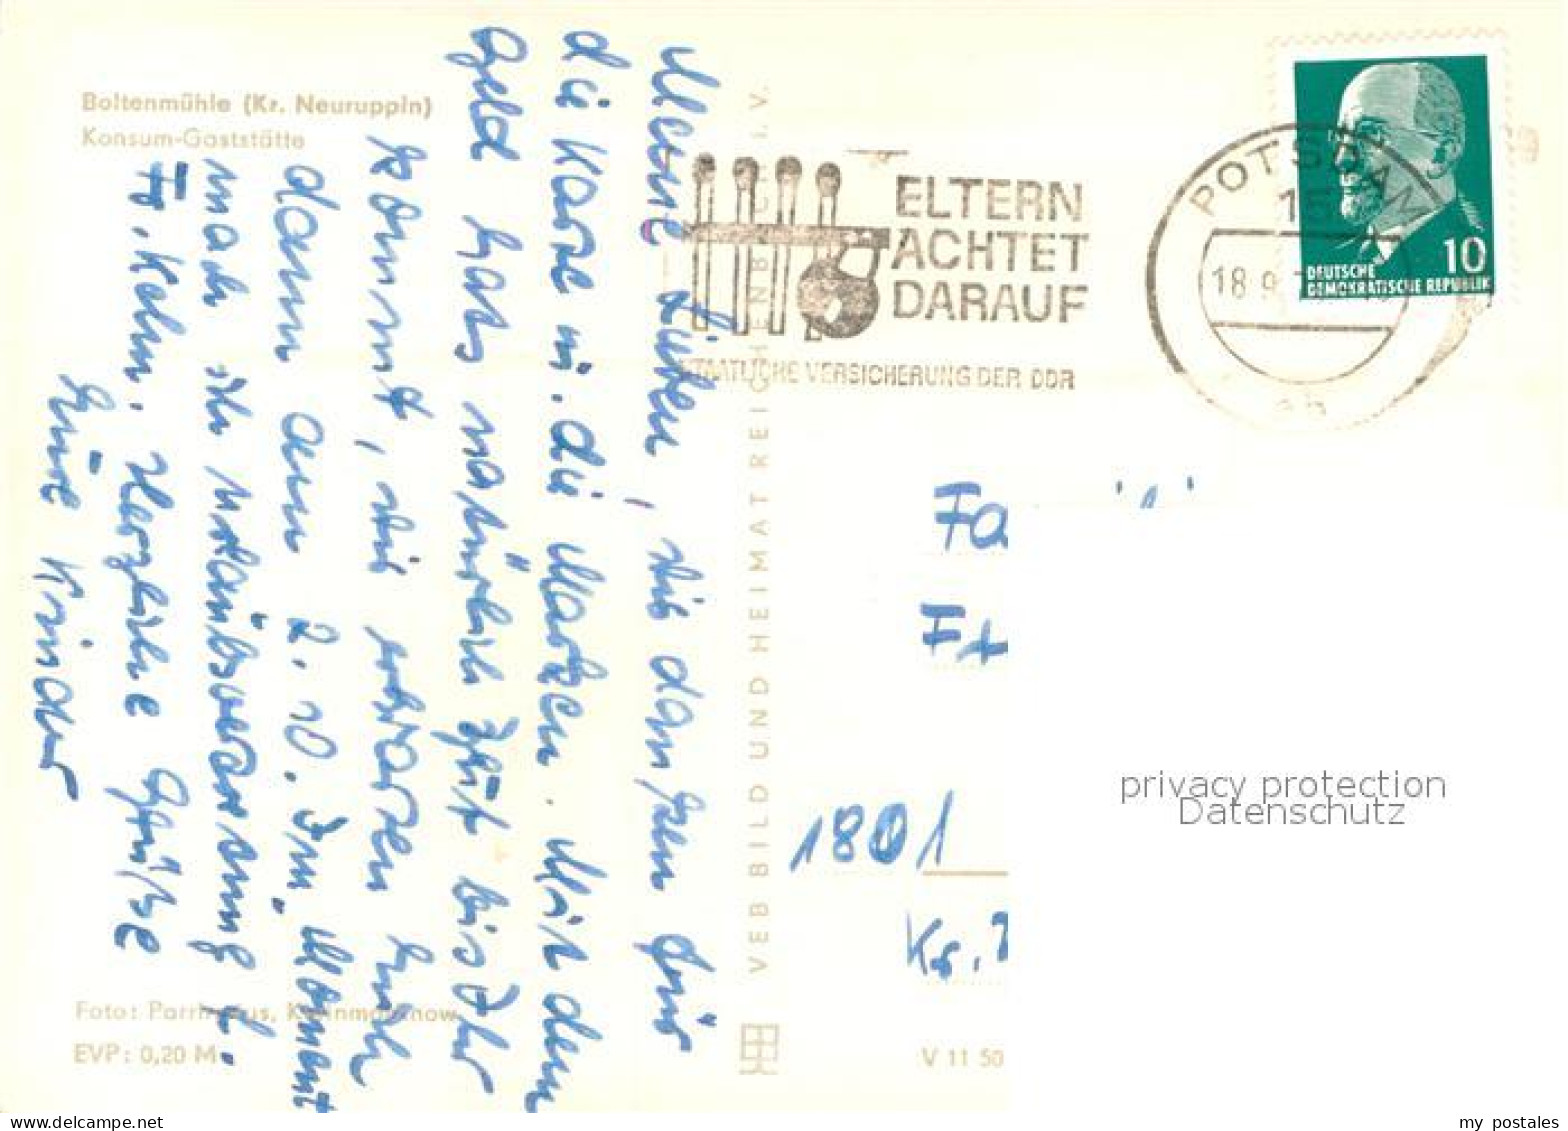 Boltenmühle (Kr. Neuruppin)
Konsum-Gaststätte
Meine Lieben, wir danken für
die Karte u. die Marken. Mit dem
Geld hats natürlich Zeit bis Ihr
kommt, wir erwarten Euch
dann am 2.10. Im Moment
mach ich Urlaubsvertretung f.
Fr. Kelm. Herzliche Grüße
Eure Kinder
Foto:
EVP: 0,20 M
VEB BILD UND HEIMAT REICHENBACH I. V.
V 11 50
ELTERN
ACHTET
DARAUF
STAATLICHE VERSICHERUNG DER DDR
POTSDAM
18.9.
10
DEUTSCHE
DEMOKRATISCHE REPUBLIK
Fa
1801
Kr.
privacy protection
Datenschutz
my postales